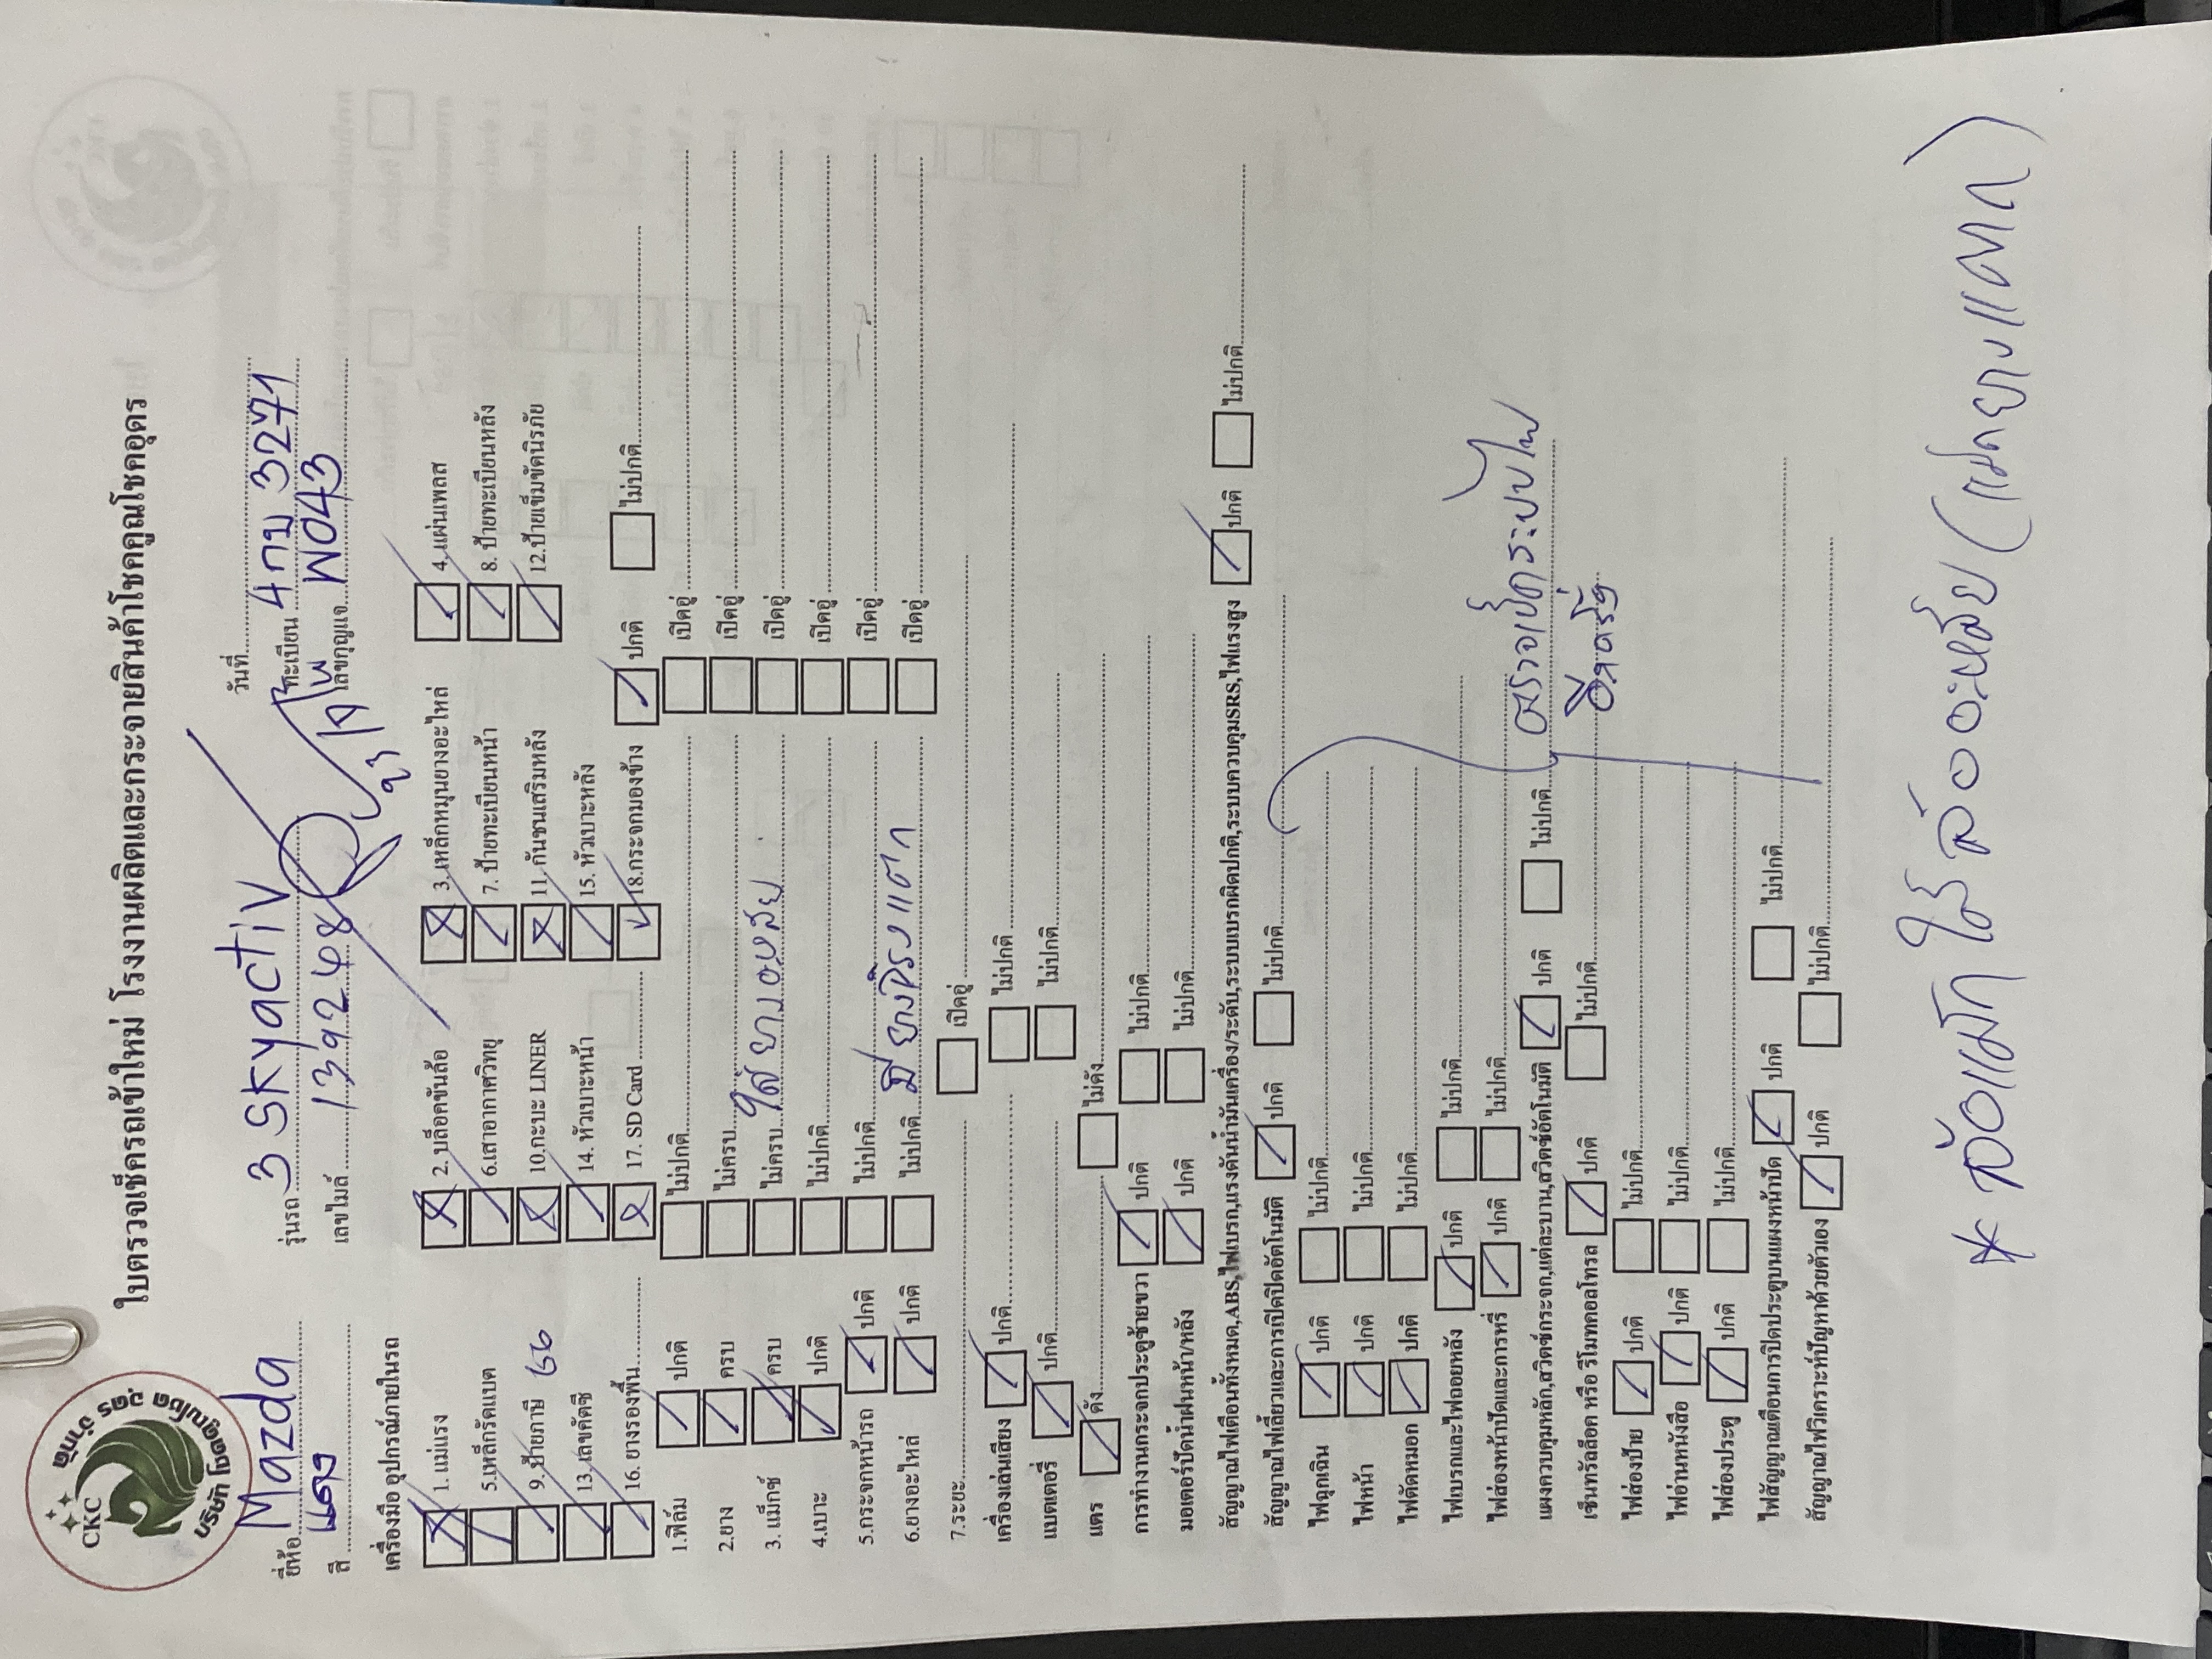 CKC
บริษัท โชคคูณโชค อุดร จำกัด
ใบตรวจเช็ครถเข้าใหม่ โรงงานผลิตและกระจายสินค้าโชคคูณโชคอุดร
วันที่
ยี่ห้อ Mazda รุ่นรถ 3 Skyactiv ทะเบียน 4 กบ 3271
สี แดง เลขไมล์ 139268 เลขกุญแจ W043
เครื่องมือ อุปกรณ์ภายในรถ
1. แม่แรง 2. บล็อคขันล้อ 3. เหล็กหมุนยางอะไหล่ 4. แผ่นเพลส
5.เหล็กรัดแบต 6.เสาอากาศวิทยุ 7. ป้ายทะเบียนหน้า 8. ป้ายทะเบียนหลัง
9. ป้ายภาษี 66 10.กะบะ LINER 11. กันชนเสริมหลัง 12.ป้ายเข็มขัดนิรภัย
13. เลขคัตซี 14. หัวเบาะหน้า 15. หัวเบาะหลัง
16. ยางรองพื้น 17. SD Card 18.กระจกมองข้าง ปกติ ไม่ปกติ
1.ฟิล์ม ปกติ ไม่ปกติ เปิดอู่
2.ยาง ครบ ไม่ครบ เปิดอู่
3. แม็กซ์ ครบ ไม่ครบ ใส่ยางอะหลัย เปิดอู่
4.เบาะ ปกติ ไม่ปกติ เปิดอู่
5.กระจกหน้ารถ ปกติ ไม่ปกติ เปิดอู่
6.ยางอะไหล่ ปกติ ไม่ปกติ มียางจริงแตก เปิดอู่
7.ระยะ เปิดอู่
เครื่องเล่นเสียง ปกติ ไม่ปกติ
แบตเตอรี่ ปกติ ไม่ปกติ
แตร ดัง ไม่ดัง
การทำงานกระจกประตูซ้ายขวา ปกติ ไม่ปกติ
มอเตอร์ปัดน้ำฝนหน้า/หลัง ปกติ ไม่ปกติ
สัญญาณไฟเตือนทั้งหมด,ABS,ไฟเบรก,แรงดันน้ำมันเครื่อง/ระดับ,ระบบเบรกผิดปกติ,ระบบควบคุมSRS,ไฟแรงสูง ปกติ ไม่ปกติ
สัญญาณไฟเลี้ยวและการเปิดปิดอัตโนมัติ ปกติ ไม่ปกติ
ไฟฉุกเฉิน ปกติ ไม่ปกติ
ไฟหน้า ปกติ ไม่ปกติ
ไฟตัดหมอก ปกติ ไม่ปกติ
ไฟเบรกและไฟถอยหลัง ปกติ ไม่ปกติ
ไฟส่องหน้าปัดและการหรี่ ปกติ ไม่ปกติ
แผงควบคุมหลัก,สวิตซ์กระจก,แต่ละบาน,สวิตซ์อัตโนมัติ ปกติ ไม่ปกติ ตรวจเช็คระบบไฟ
เซ็นทรัลล็อค หรือ รีโมทคอลโทรล ปกติ ไม่ปกติ อีกครั้ง
ไฟส่องป้าย ปกติ ไม่ปกติ
ไฟอ่านหนังสือ ปกติ ไม่ปกติ
ไฟส่องประตู ปกติ ไม่ปกติ
ไฟสัญญาณเตือนการปิดประตูบนแผงหน้าปัด ปกติ ไม่ปกติ
สัญญาณไฟวิเคราะห์ปัญหาด้วยตัวเอง ปกติ ไม่ปกติ
* ล้อแม็ก ใส่ล้ออะหลัย (แม็คยางแตก)